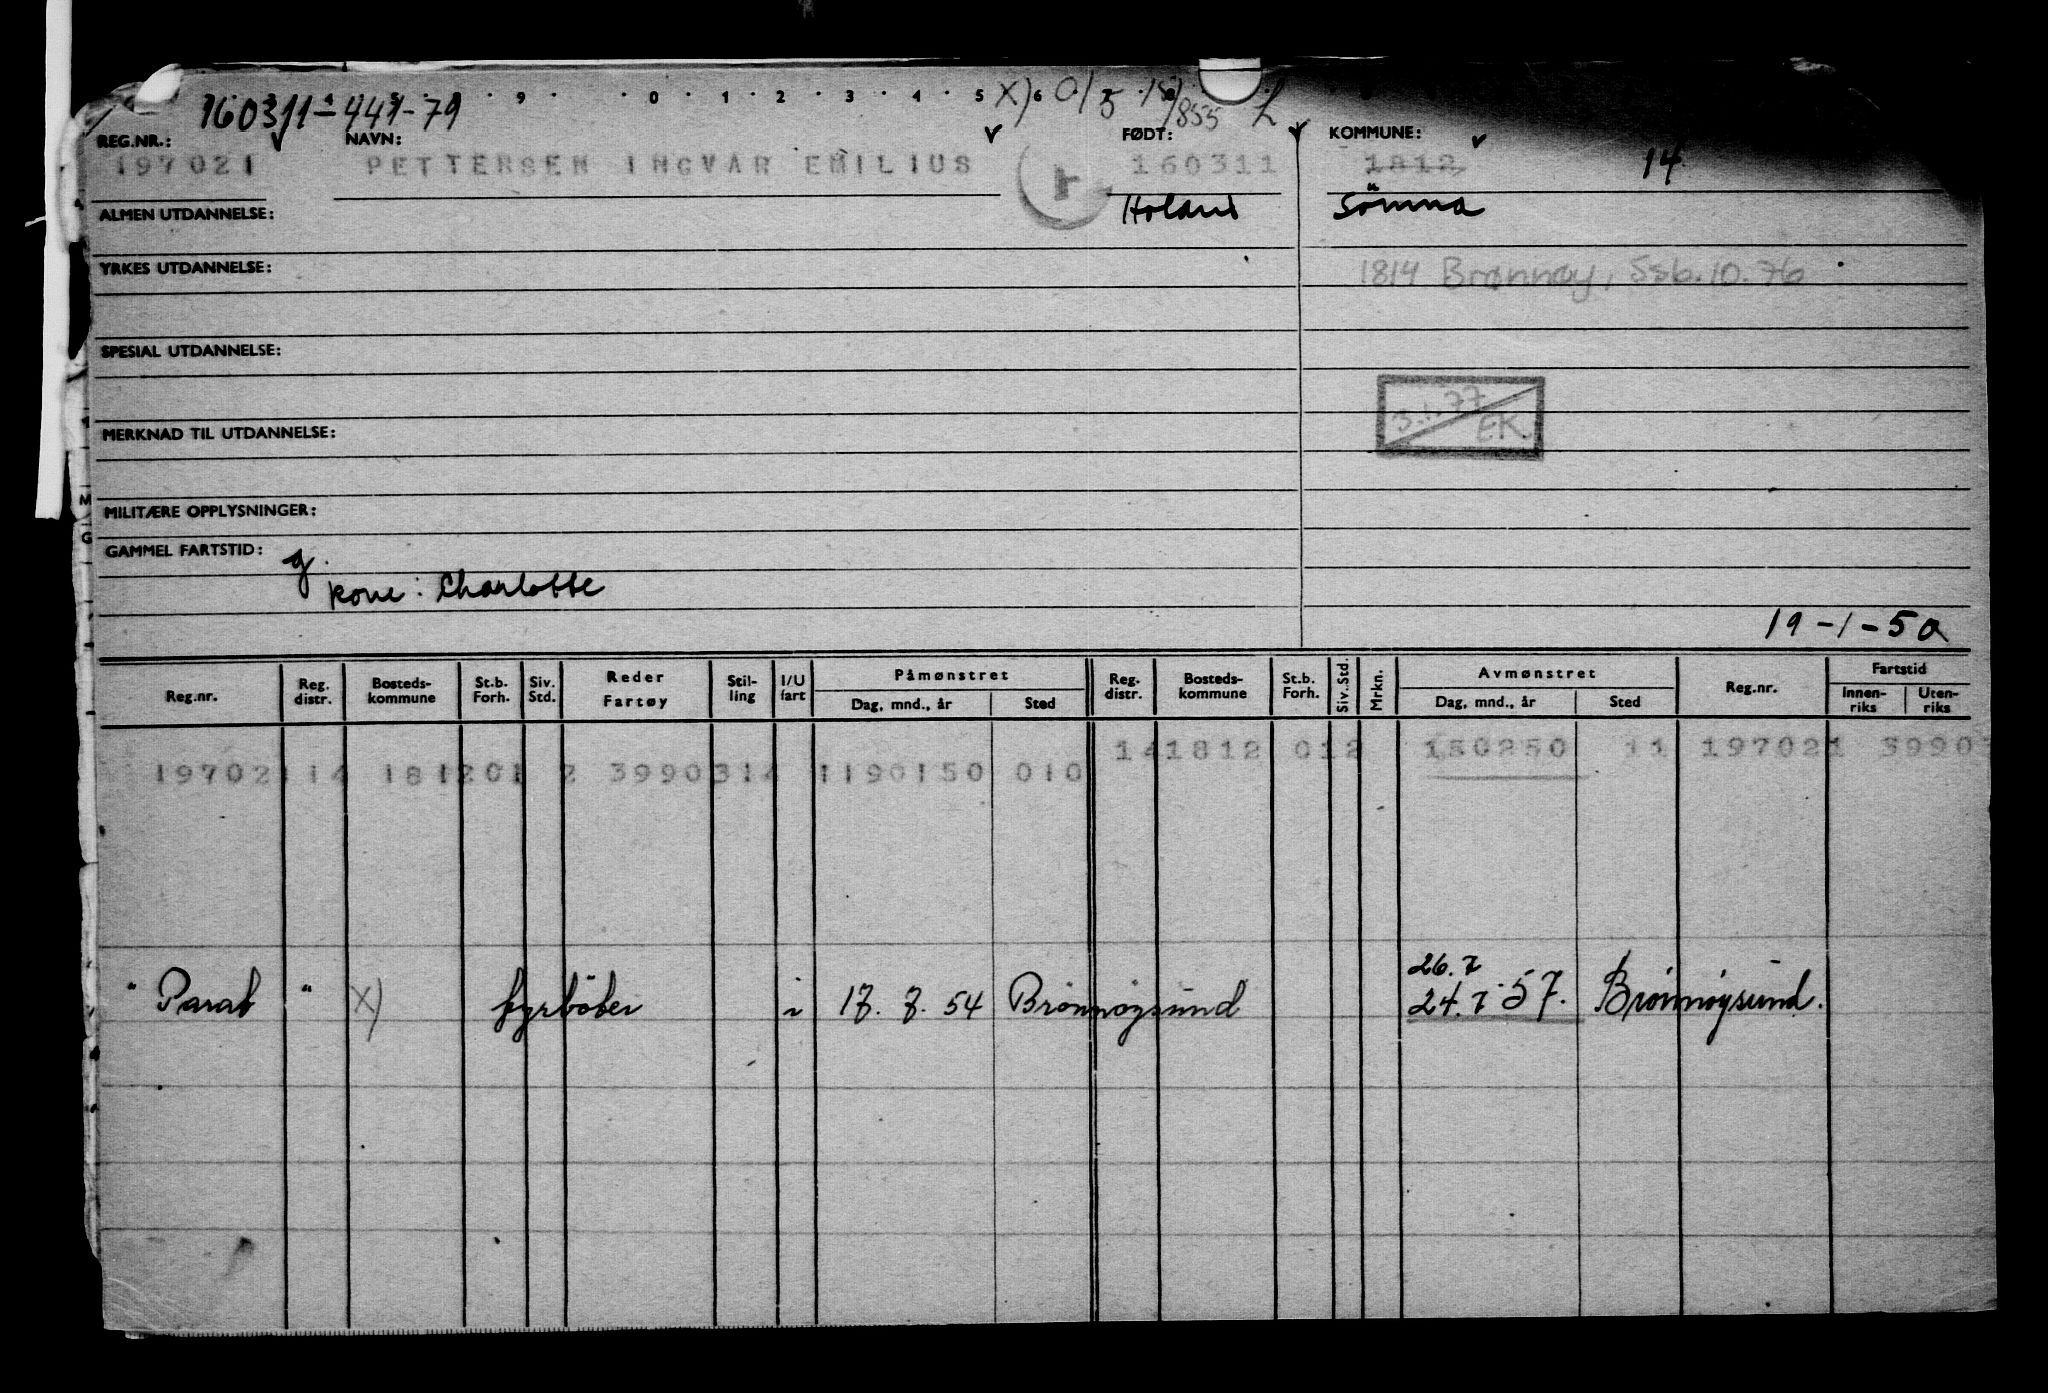 160311-441-79
9 0 1 2 3 4 5 X) 6 0/5
1855
REG.NR.: NAVN: FØDT: KOMMUNE:
197021 PETTERSEN INGVAR EMILIUS r 160311 1812 14
Holand Sömna
ALMEN UTDANNELSE:
YRKES UTDANNELSE:
1814 Brønnøy, Ssb. 10. 76
SPESIAL UTDANNELSE:
3.1.77
EK.
MERKNAD TIL UTDANNELSE:
MILITÆRE OPPLYSNINGER:
GAMMEL FARTSTID: g.
kone: Charlotte
19-1-50
Reg.nr. Reg. distr. Bosteds-kommune St.b. Forh. Siv. Std. Reder Fartøy Stil-ling I/U fart Påmønstret Dag, mnd., år Sted Reg. distr. Bosteds-kommune St.b. Forh. Siv. Std. Mrkn. Avmønstret Dag, mnd., år Sted Reg.nr. Fartstid Innen-riks Uten-riks
141812 012 150250 11 197021 3990
197021 14 181201 2 3990314 1190150 010
26.7
" Parat " X) fyrböter i 17. 7. 54 Brönnöysund 24.7 57. Brönnöysund.